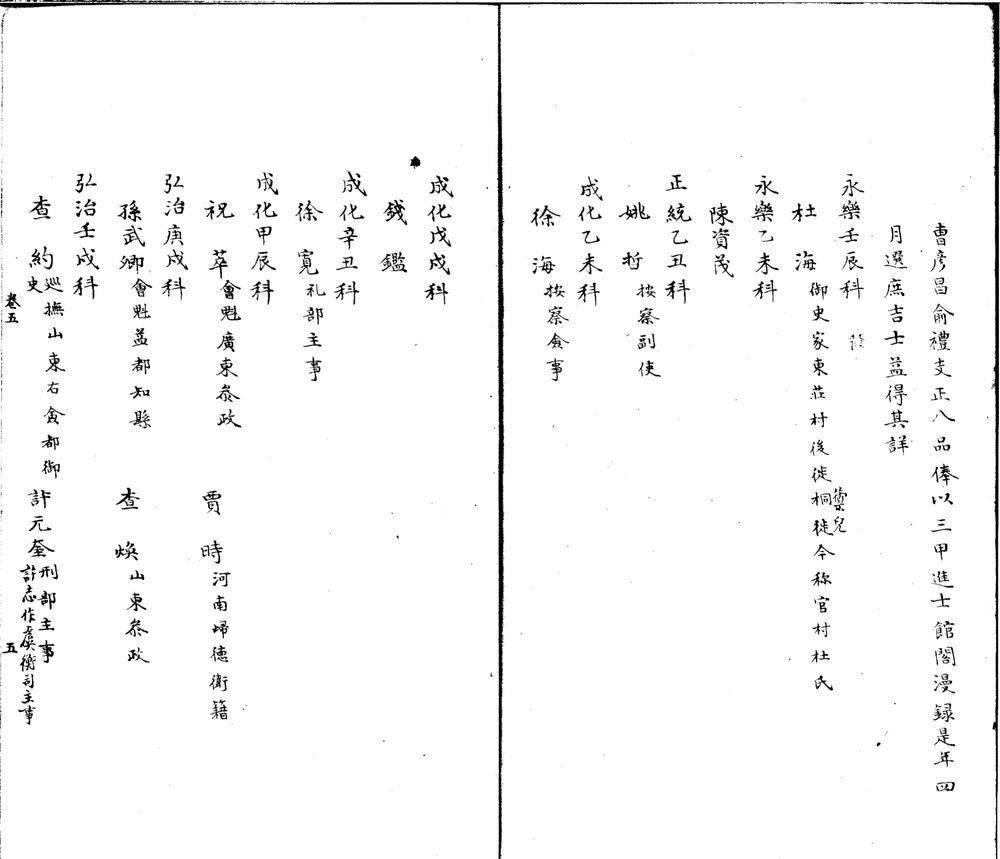 曹彥昌俞禮支正八品俸以三甲進士館閣漫録是年四
月選庶吉士益得其詳
永樂壬辰科
杜海 御史家東莊村後徙桐徙今称官村杜氏
永樂乙未科
陳資茂
正統乙丑科
姚哲 按察副使
成化乙未科
徐海 按察僉事
成化戊戌科
錢鑑
成化辛丑科
徐寬 礼部主事
成化甲辰科
祝萃 會魁廣東叅政 賈時 河南歸德衛籍
弘治庚戌科
孫武卿 會魁益都知縣 查煥 山東叅政
弘治壬戌科
查約 巡撫山東右僉都御史 許元奎 刑部主事 許志作虞衡司主事
卷五 五